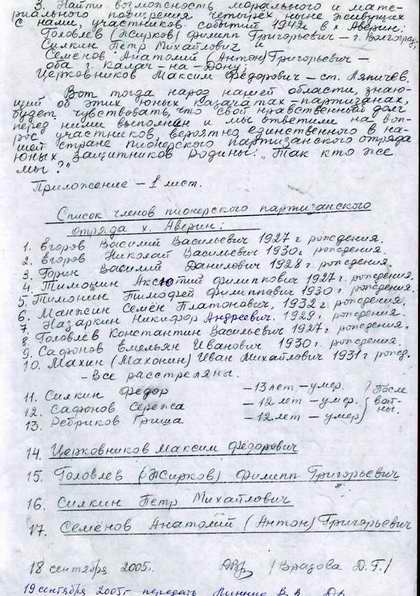 3. Найти возможность морального и мате-
риального поощрения четырех ныне живущих
с нами, участников событий 1942г. в х. Аверин:
Головлев (Жирков) Филипп Григорьевич - г. Волгоград,
Силкин Петр Михайлович и
Семенов Анатолий (Антон) Григорьевич -
оба г. Калач-на-Дону;
Церковников Максим Федорович - ст. Ляпичев.
Вот тогда народ нашей области, знаю-
щий об этих юных казачатах-партизанах
будет чувствовать, что свой нравственный долг
перед ними выполнен и мы ответили на воп-
рос участников, вероятно единственного в на-
шей стране пионерского партизанского отряда
юных защитников Родины: „Так кто же
мы?"
Приложение - 1 лист.
Список членов пионерского партизанского
отряда х. Аверин:
1. Егоров Василий Васильевич 1927 г. рождения.
2. Егоров Николай Васильевич 1930 г. рождения.
3. Горин Василий Данилович 1928 г. рождения.
4. Тимонин Аксютий Филиппович 1927 г. рождения.
5. Тимонин Тимофей Филиппович 1930 г. рождения.
6. Манжин Семён Платонович, 1932 г. рождения.
7. Назаркин Никифор Андреевич. 1929 г. рождения.
8. Головлев Константин Васильевич 1927 г. рождения.
9. Сафонов Емельян Иванович 1930 г. рождения.
10. Махин (Махонин) Иван Михайлович 1931 г. рожд.
- все расстреляны.
11. Силкин Федор - 13 лет - умер. После
12. Сафонов Серёжа - 12 лет - умер. вой-
13. Ребриков Гриша - 12 лет - умер ны.
14. Церковников Максим Федорович
15. Головлев (Жирков) Филипп Григорьевич
16. Силкин Петр Михайлович
17. Семёнов Анатолий (Антон) Григорьевич
18 сентября 2005г.
19 сентября 2005г. передать